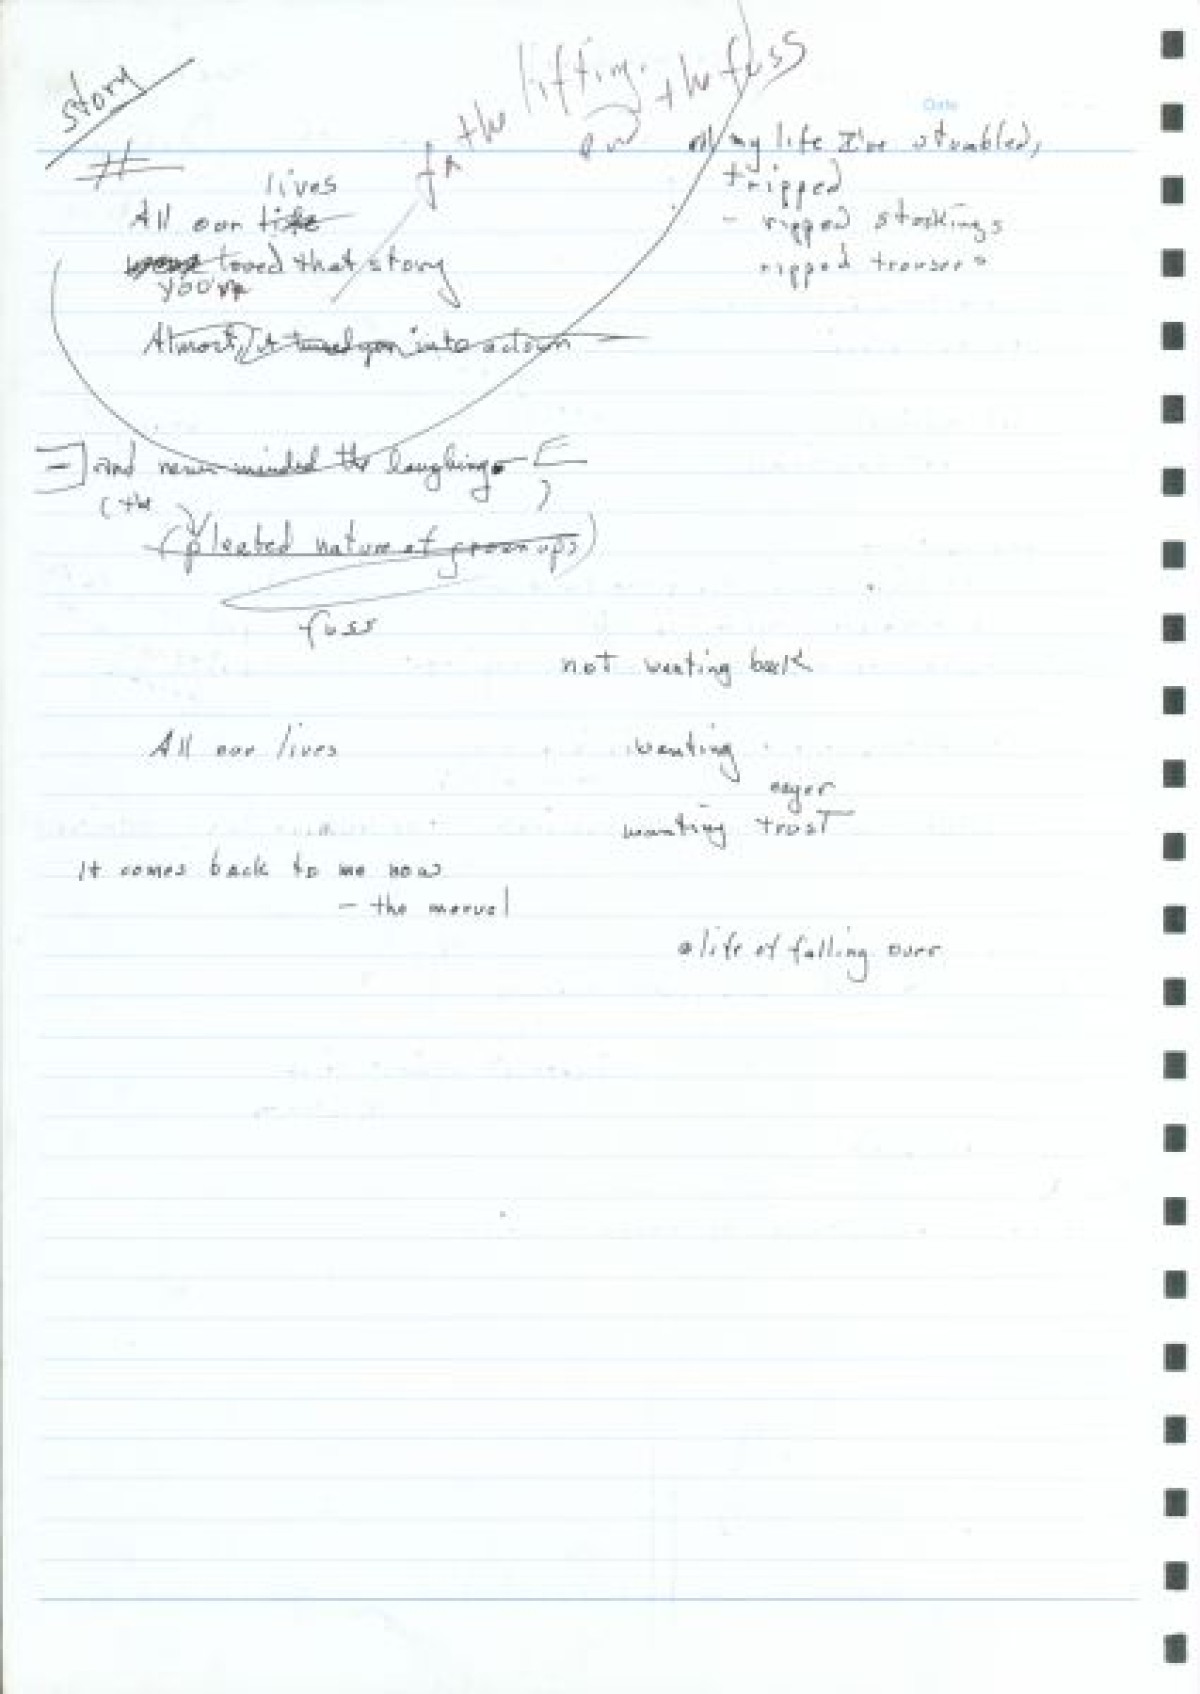 story
the lifting
and the fuss
Date
all my life I've stumbled,
tripped
- ripped stockings
ripped trousers
lives
All our life
loved that story
you've
Almost, it turned you into a clown
and never minded the laughing
(the
(pleated nature of grown ups)
fuss
not wanting back
All our lives
wanting
eager
wanting trust
It comes back to me now
- the marvel
a life of falling over